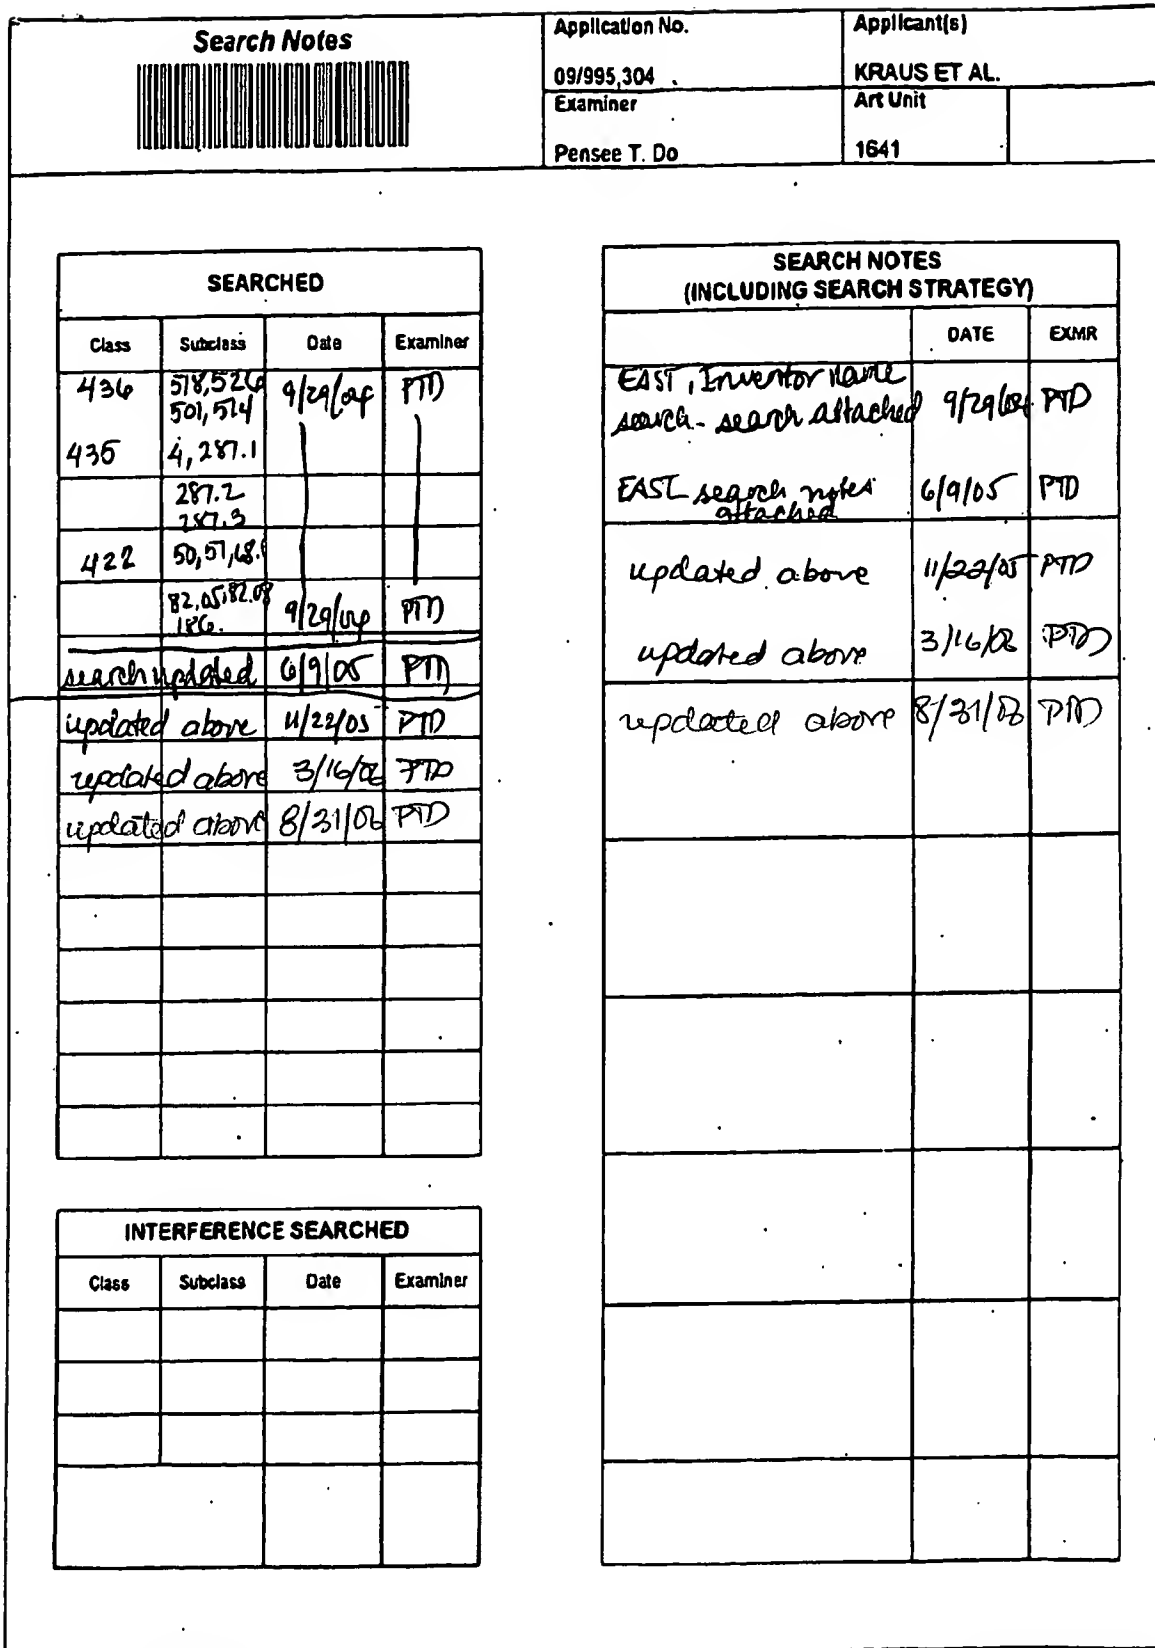 Search Notes
Application No.
Applicant(s)
09/995,304
KRAUS ET AL.
Examiner
Art Unit
Pensee T. Do
1641
SEARCHED
Class Subclass Date Examiner
436 518,526 9/29/04 PTD
501,514
435 4, 287.1
287.2
287.3
422 50,57,68.1
82.05,82.08 9/29/04 PTD
186.
search updated 6/9/05 PTD
updated above 11/22/05 PTD
updated above 3/16/06 PTD
updated above 8/31/06 PTD
INTERFERENCE SEARCHED
Class Subclass Date Examiner
SEARCH NOTES
(INCLUDING SEARCH STRATEGY)
DATE EXMR
EAST, Inventor name
search - search attached 9/29/04 PTD
EAST search notes 6/9/05 PTD
attached
updated above 11/22/05 PTD
updated above 3/16/06 PTD
updated above 8/31/06 PTD